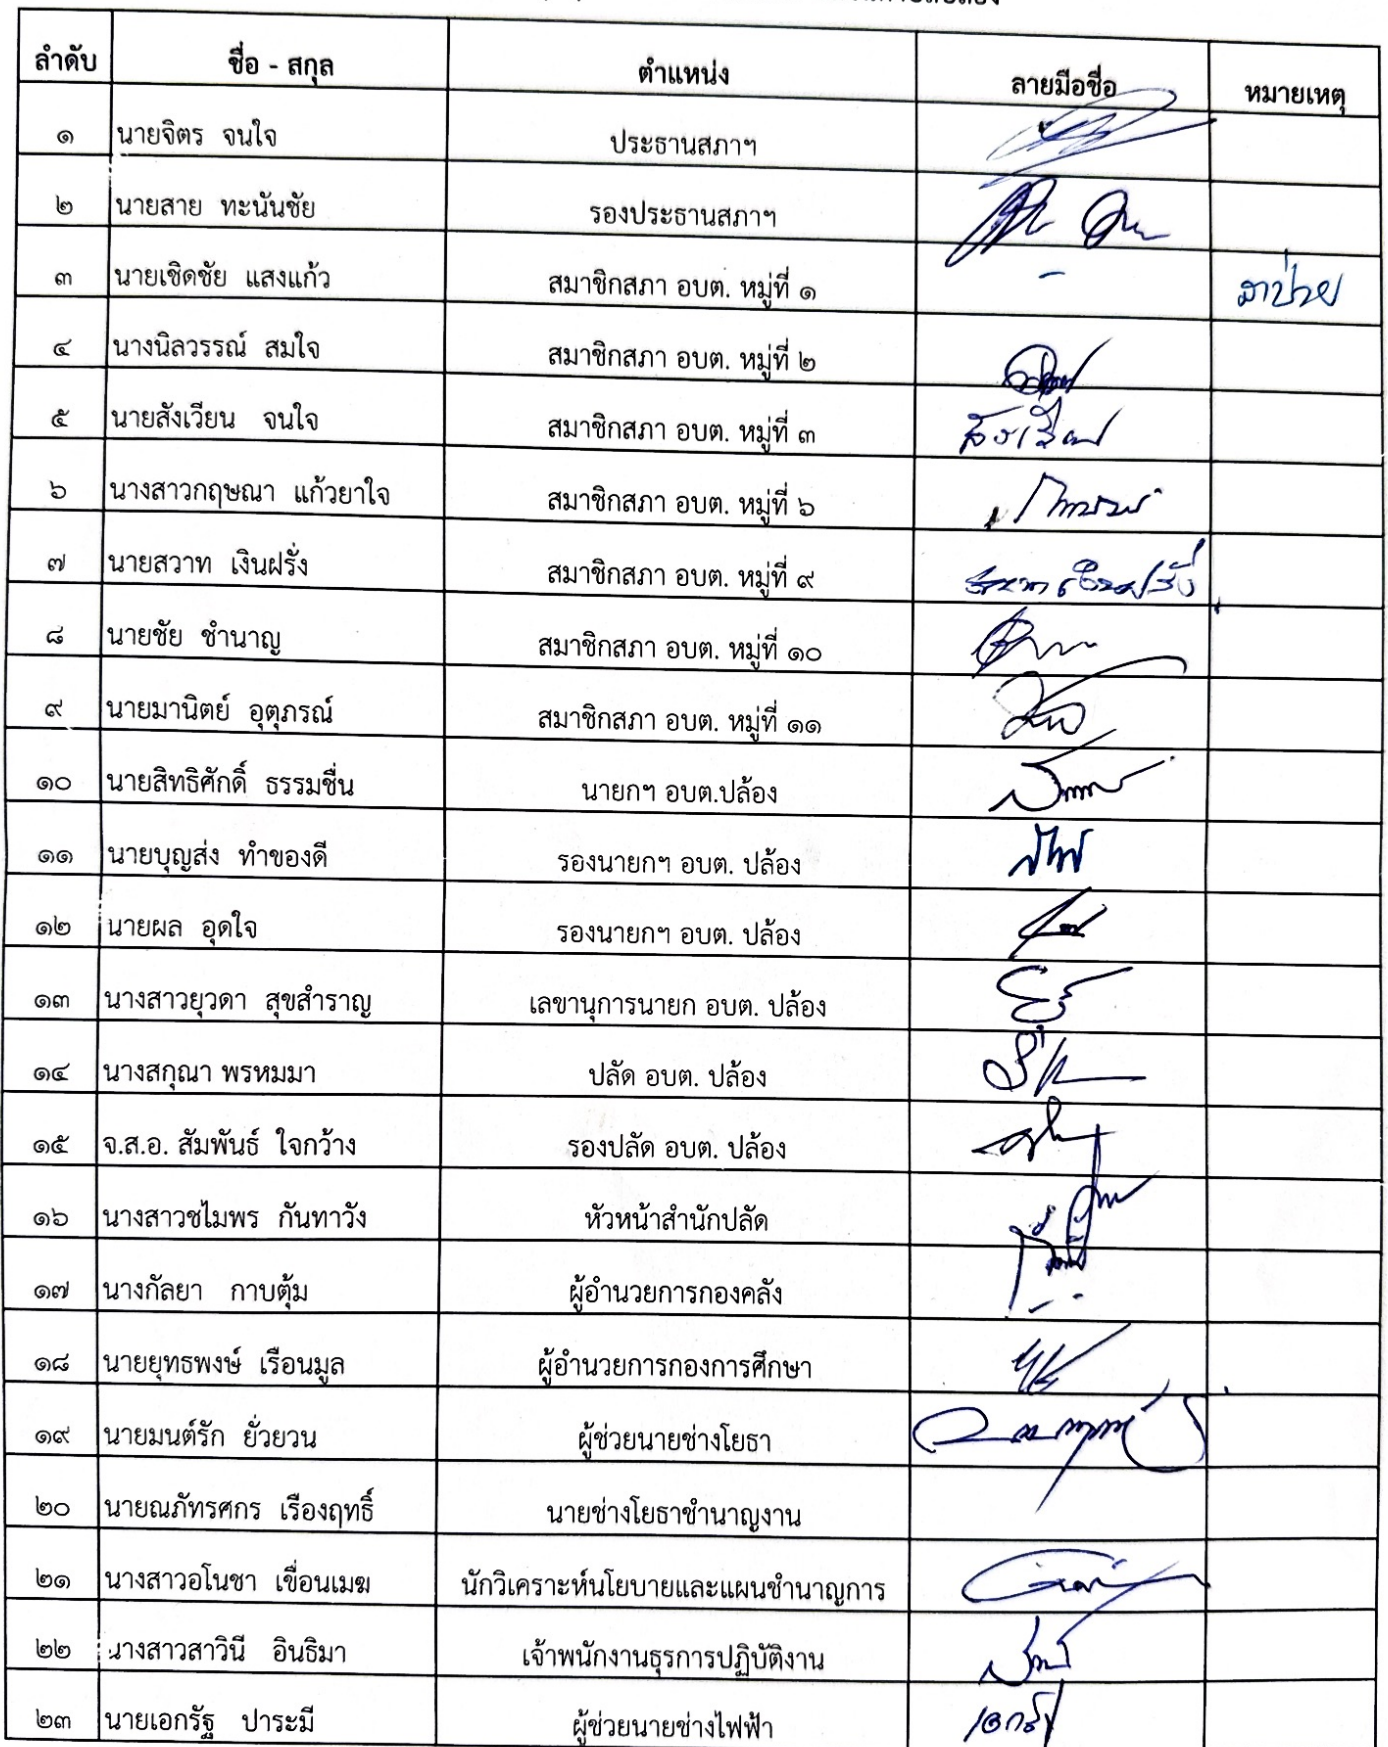 ลำดับ ชื่อ - สกุล ตำแหน่ง ลายมือชื่อ หมายเหตุ
๑ นายจิตร จนใจ ประธานสภาฯ
๒ นายสาย ทะนันชัย รองประธานสภาฯ
๓ นายเชิดชัย แสงแก้ว สมาชิกสภา อบต. หมู่ที่ ๑ - ลาป่วย
๔ นางนิลวรรณ์ สมใจ สมาชิกสภา อบต. หมู่ที่ ๒
๕ นายสังเวียน จนใจ สมาชิกสภา อบต. หมู่ที่ ๓ สังเวียน
๖ นางสาวกฤษณา แก้วยาใจ สมาชิกสภา อบต. หมู่ที่ ๖
๗ นายสวาท เงินฝรั่ง สมาชิกสภา อบต. หมู่ที่ ๙ สวาท เงินฝรั่ง
๘ นายชัย ชำนาญ สมาชิกสภา อบต. หมู่ที่ ๑๐
๙ นายมานิตย์ อุตุภรณ์ สมาชิกสภา อบต. หมู่ที่ ๑๑
๑๐ นายสิทธิศักดิ์ ธรรมชื่น นายกฯ อบต.ปล้อง
๑๑ นายบุญส่ง ทำของดี รองนายกฯ อบต. ปล้อง
๑๒ นายผล อุดใจ รองนายกฯ อบต. ปล้อง
๑๓ นางสาวยุวดา สุขสำราญ เลขานุการนายก อบต. ปล้อง
๑๔ นางสกุณา พรหมมา ปลัด อบต. ปล้อง
๑๕ จ.ส.อ. สัมพันธ์ ใจกว้าง รองปลัด อบต. ปล้อง
๑๖ นางสาวชไมพร กันทาวัง หัวหน้าสำนักปลัด
๑๗ นางกัลยา กาบตุ้ม ผู้อำนวยการกองคลัง
๑๘ นายยุทธพงษ์ เรือนมูล ผู้อำนวยการกองการศึกษา
๑๙ นายมนต์รัก ยั่วยวน ผู้ช่วยนายช่างโยธา
๒๐ นายณภัทรศกร เรืองฤทธิ์ นายช่างโยธาชำนาญงาน
๒๑ นางสาวอโนชา เขื่อนเมฆ นักวิเคราะห์นโยบายและแผนชำนาญการ
๒๒ นางสาวสาวินี อินธิมา เจ้าพนักงานธุรการปฏิบัติงาน
๒๓ นายเอกรัฐ ปาระมี ผู้ช่วยนายช่างไฟฟ้า เอกรัฐ